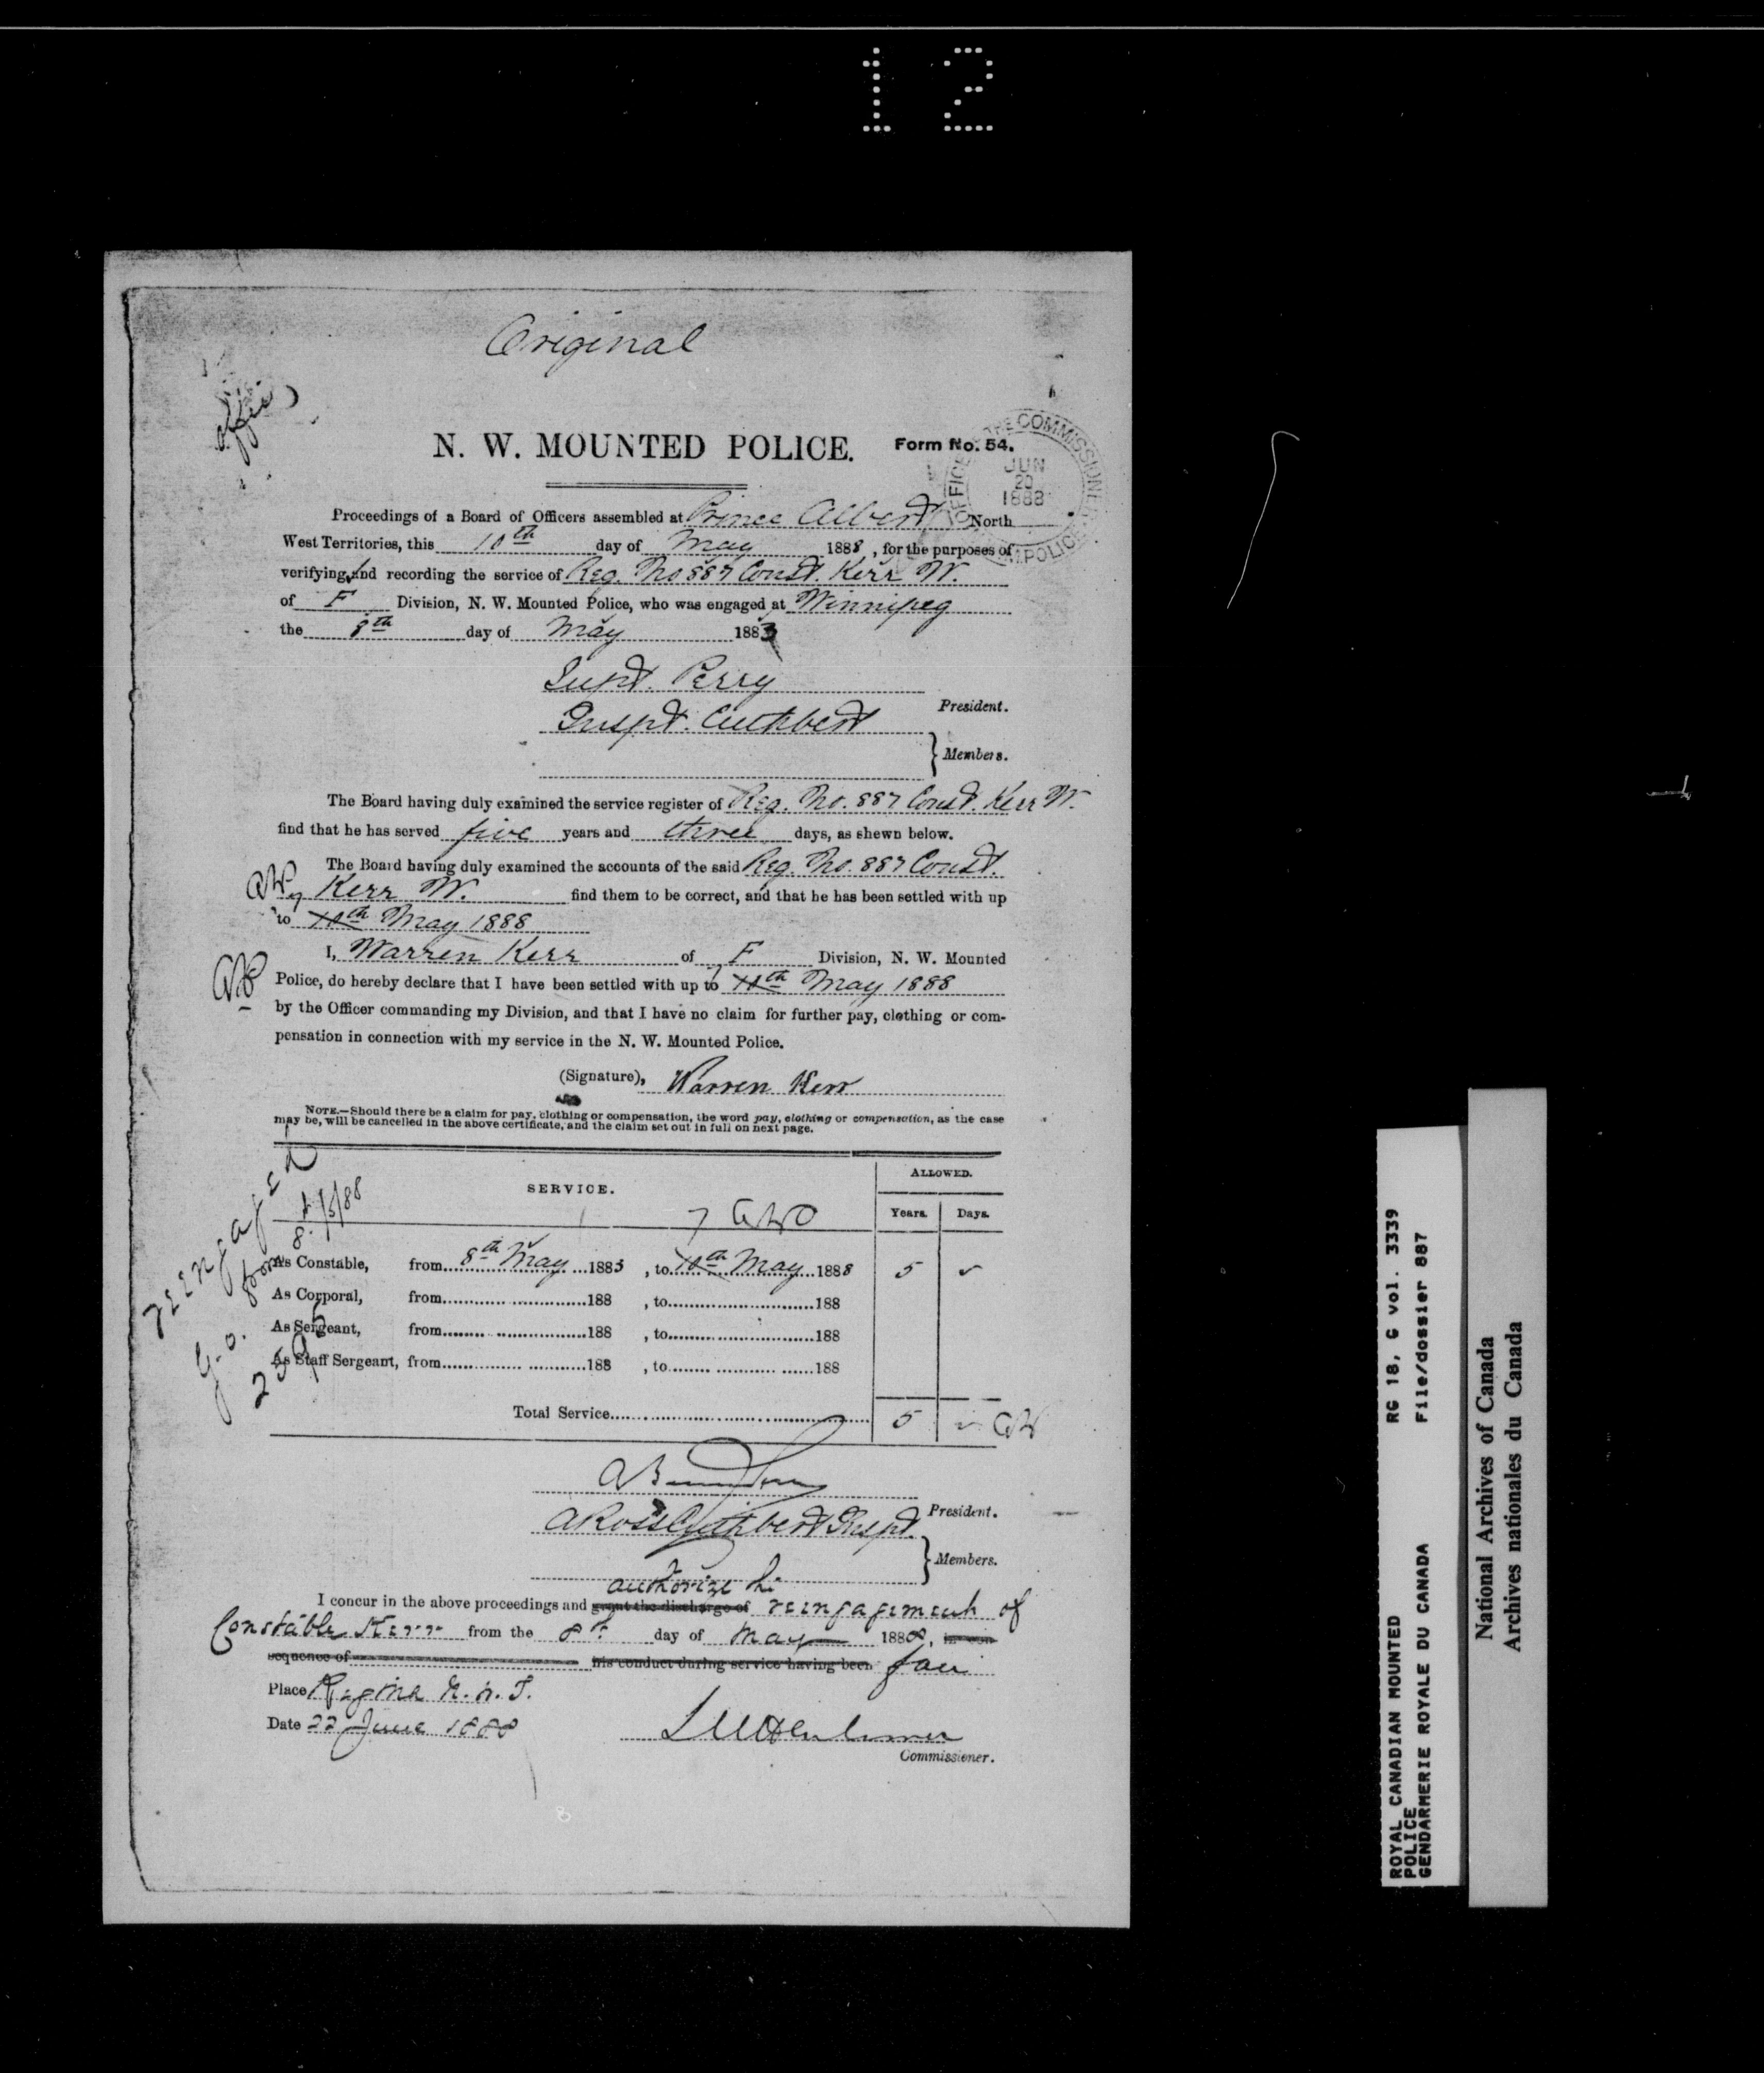 12
Original
offic
N. W. MOUNTED POLICE. Form No. 54.
OFFICE THE COMMISSIONER
JUN
20
1888
N.W.M. POLICE
Proceedings of a Board of Officers assembled at Prince Albert North
West Territories, this 10th day of May 1888, for the purposes of
verifying and recording the service of Reg. No 887 Const. Kerr W.
of F Division, N. W. Mounted Police, who was engaged at Winnipeg
the 8th day of May 1883
Supt. Perry
President.
Inspt. Cuthbert
} Members.
The Board having duly examined the service register of Reg. No. 887 Const. Kerr W.
find that he has served five years and three days, as shewn below.
The Board having duly examined the accounts of the said Reg. No. 887 Const.
Kerr W. find them to be correct, and that he has been settled with up
7
to 10th May 1888
I, Warren Kerr of F Division, N. W. Mounted
7
Police, do hereby declare that I have been settled with up to 10th May 1888
by the Officer commanding my Division, and that I have no claim for further pay, clothing or com-
pensation in connection with my service in the N. W. Mounted Police.
(Signature), Warren Kerr
NOTE.—Should there be a claim for pay, clothing or compensation, the word pay, clothing or compensation, as the case
may be, will be cancelled in the above certificate, and the claim set out in full on next page.
reengaged
from 8/5/88
G.O.
SERVICE.
ALLOWED.
Years. Days.
7
As Constable, from 8th May 1883, to 10th May 1888 5
As Corporal, from 188 , to 188
As Sergeant, from 188 , to 188
As Staff Sergeant, from 188 , to 188
Total Service 5
President.
A Ross Cuthbert Inspt.
} Members.
authorize the
I concur in the above proceedings and grant the discharge of reengagement of
Constable Kerr from the 8th day of May 1888, in con
sequence of his conduct during service having been fair
Place Regina N.W.T.
Date 22 June 1888
Commissioner.
ROYAL CANADIAN MOUNTED RG 18, G vol. 3339
POLICE
GENDARMERIE ROYALE DU CANADA File/dossier 887
National Archives of Canada
Archives nationales du Canada